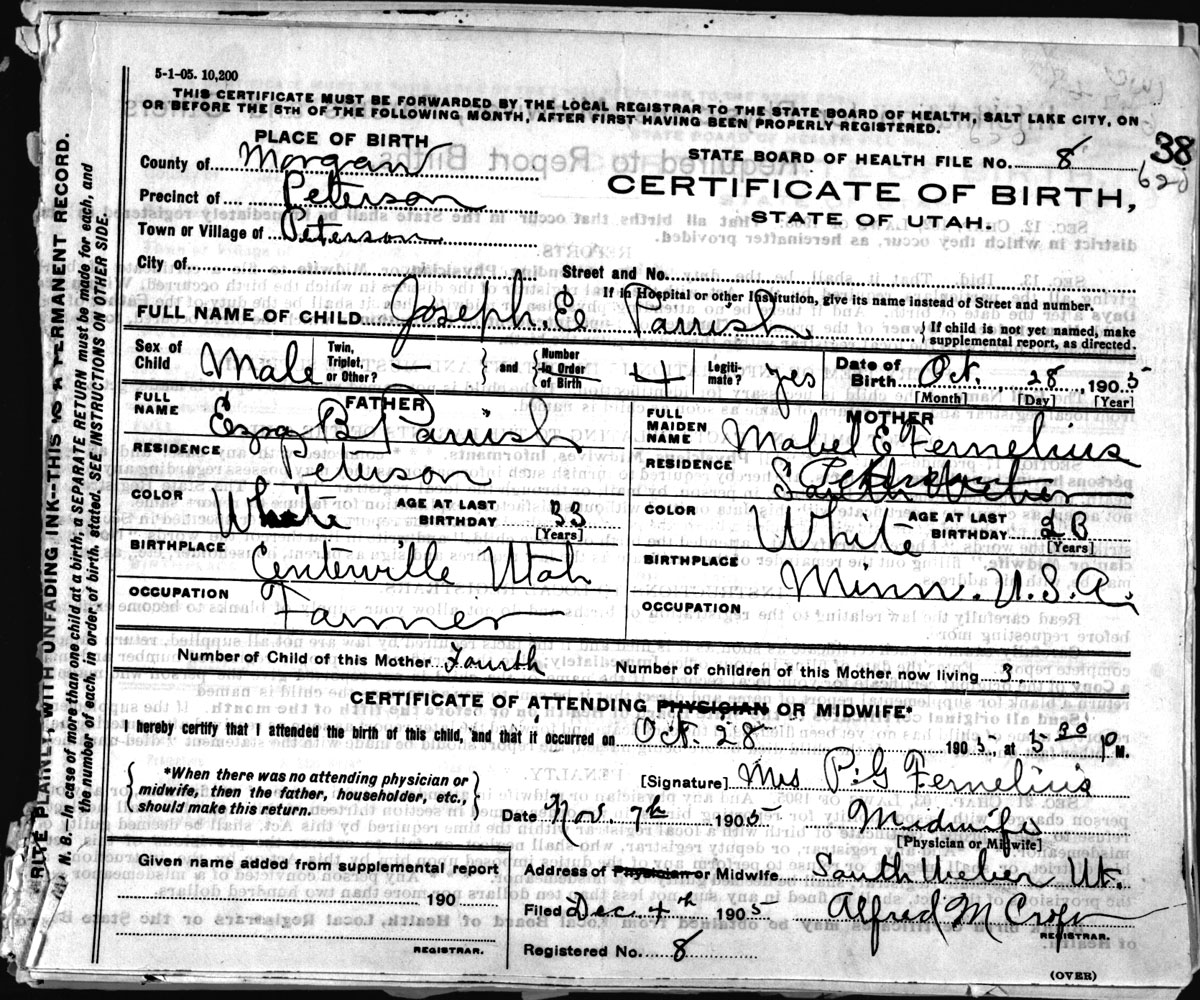 5-1-05. 10,200
THIS CERTIFICATE MUST BE FORWARDED BY THE LOCAL REGISTRAR TO THE STATE BOARD OF HEALTH, SALT LAKE CITY, ON
OR BEFORE THE 5TH OF THE FOLLOWING MONTH, AFTER FIRST HAVING BEEN PROPERLY REGISTERED.
PLACE OF BIRTH
STATE BOARD OF HEALTH FILE NO. 8
38
620
County of Morgan
CERTIFICATE OF BIRTH,
Precinct of Peterson
STATE OF UTAH.
Town or Village of Peterson
City of
Street and No.
If in Hospital or other Institution, give its name instead of Street and number.
FULL NAME OF CHILD Joseph. E Parrish
{ If child is not yet named, make supplemental report, as directed.
Sex of Child Male
Twin, Triplet, or Other? —
} and { Number in Order of Birth 4
Legitimate? yes
Date of Birth Oct. 28, 1905
[Month] [Day] [Year]
FATHER
FULL NAME Ezra B Parrish
RESIDENCE Peterson
COLOR White
AGE AT LAST BIRTHDAY 33
[Years]
BIRTHPLACE Centerville Utah
OCCUPATION Farmer
MOTHER
FULL MAIDEN NAME Mabel E Fernelius
RESIDENCE South Weber
COLOR White
AGE AT LAST BIRTHDAY 28
[Years]
BIRTHPLACE Minn. U.S.A.
OCCUPATION
Number of Child of this Mother Fourth
Number of children of this Mother now living 3
CERTIFICATE OF ATTENDING PHYSICIAN OR MIDWIFE*
I hereby certify that I attended the birth of this child, and that it occurred on Oct. 28 1905, at 5 30 P M.
{ *When there was no attending physician or midwife, then the father, householder, etc., should make this return. }
[Signature] Mrs P. G Fernelius
Date Nov. 7th 1905 Midwife
[Physician or Midwife]
Given name added from supplemental report
190
REGISTRAR.
Address of Physician or Midwife South Weber Ut.
Filed Dec 4th 1905 Alfred M
REGISTRAR.
Registered No. 8
(OVER)
RITE PLAINLY, WITH UNFADING INK--THIS IS A PERMANENT RECORD.
N. B.—In case of more than one child at a birth, a SEPARATE RETURN must be made for each, and
the number of each, in order of birth, stated. SEE INSTRUCTIONS ON OTHER SIDE.